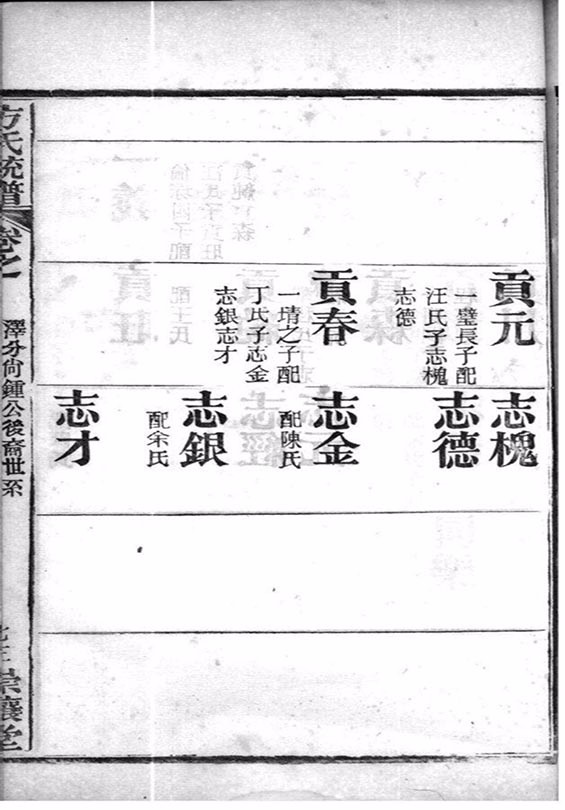 貢元
一璧長子配
汪氏子志槐
志德
貢春
一琦之子配
丁氏子志金
志銀志才
志槐
志德
志金
配陳氏
志銀
配余氏
志才
方氏統譜
卷之
澤分尚鍾公後裔世系
崇讓堂